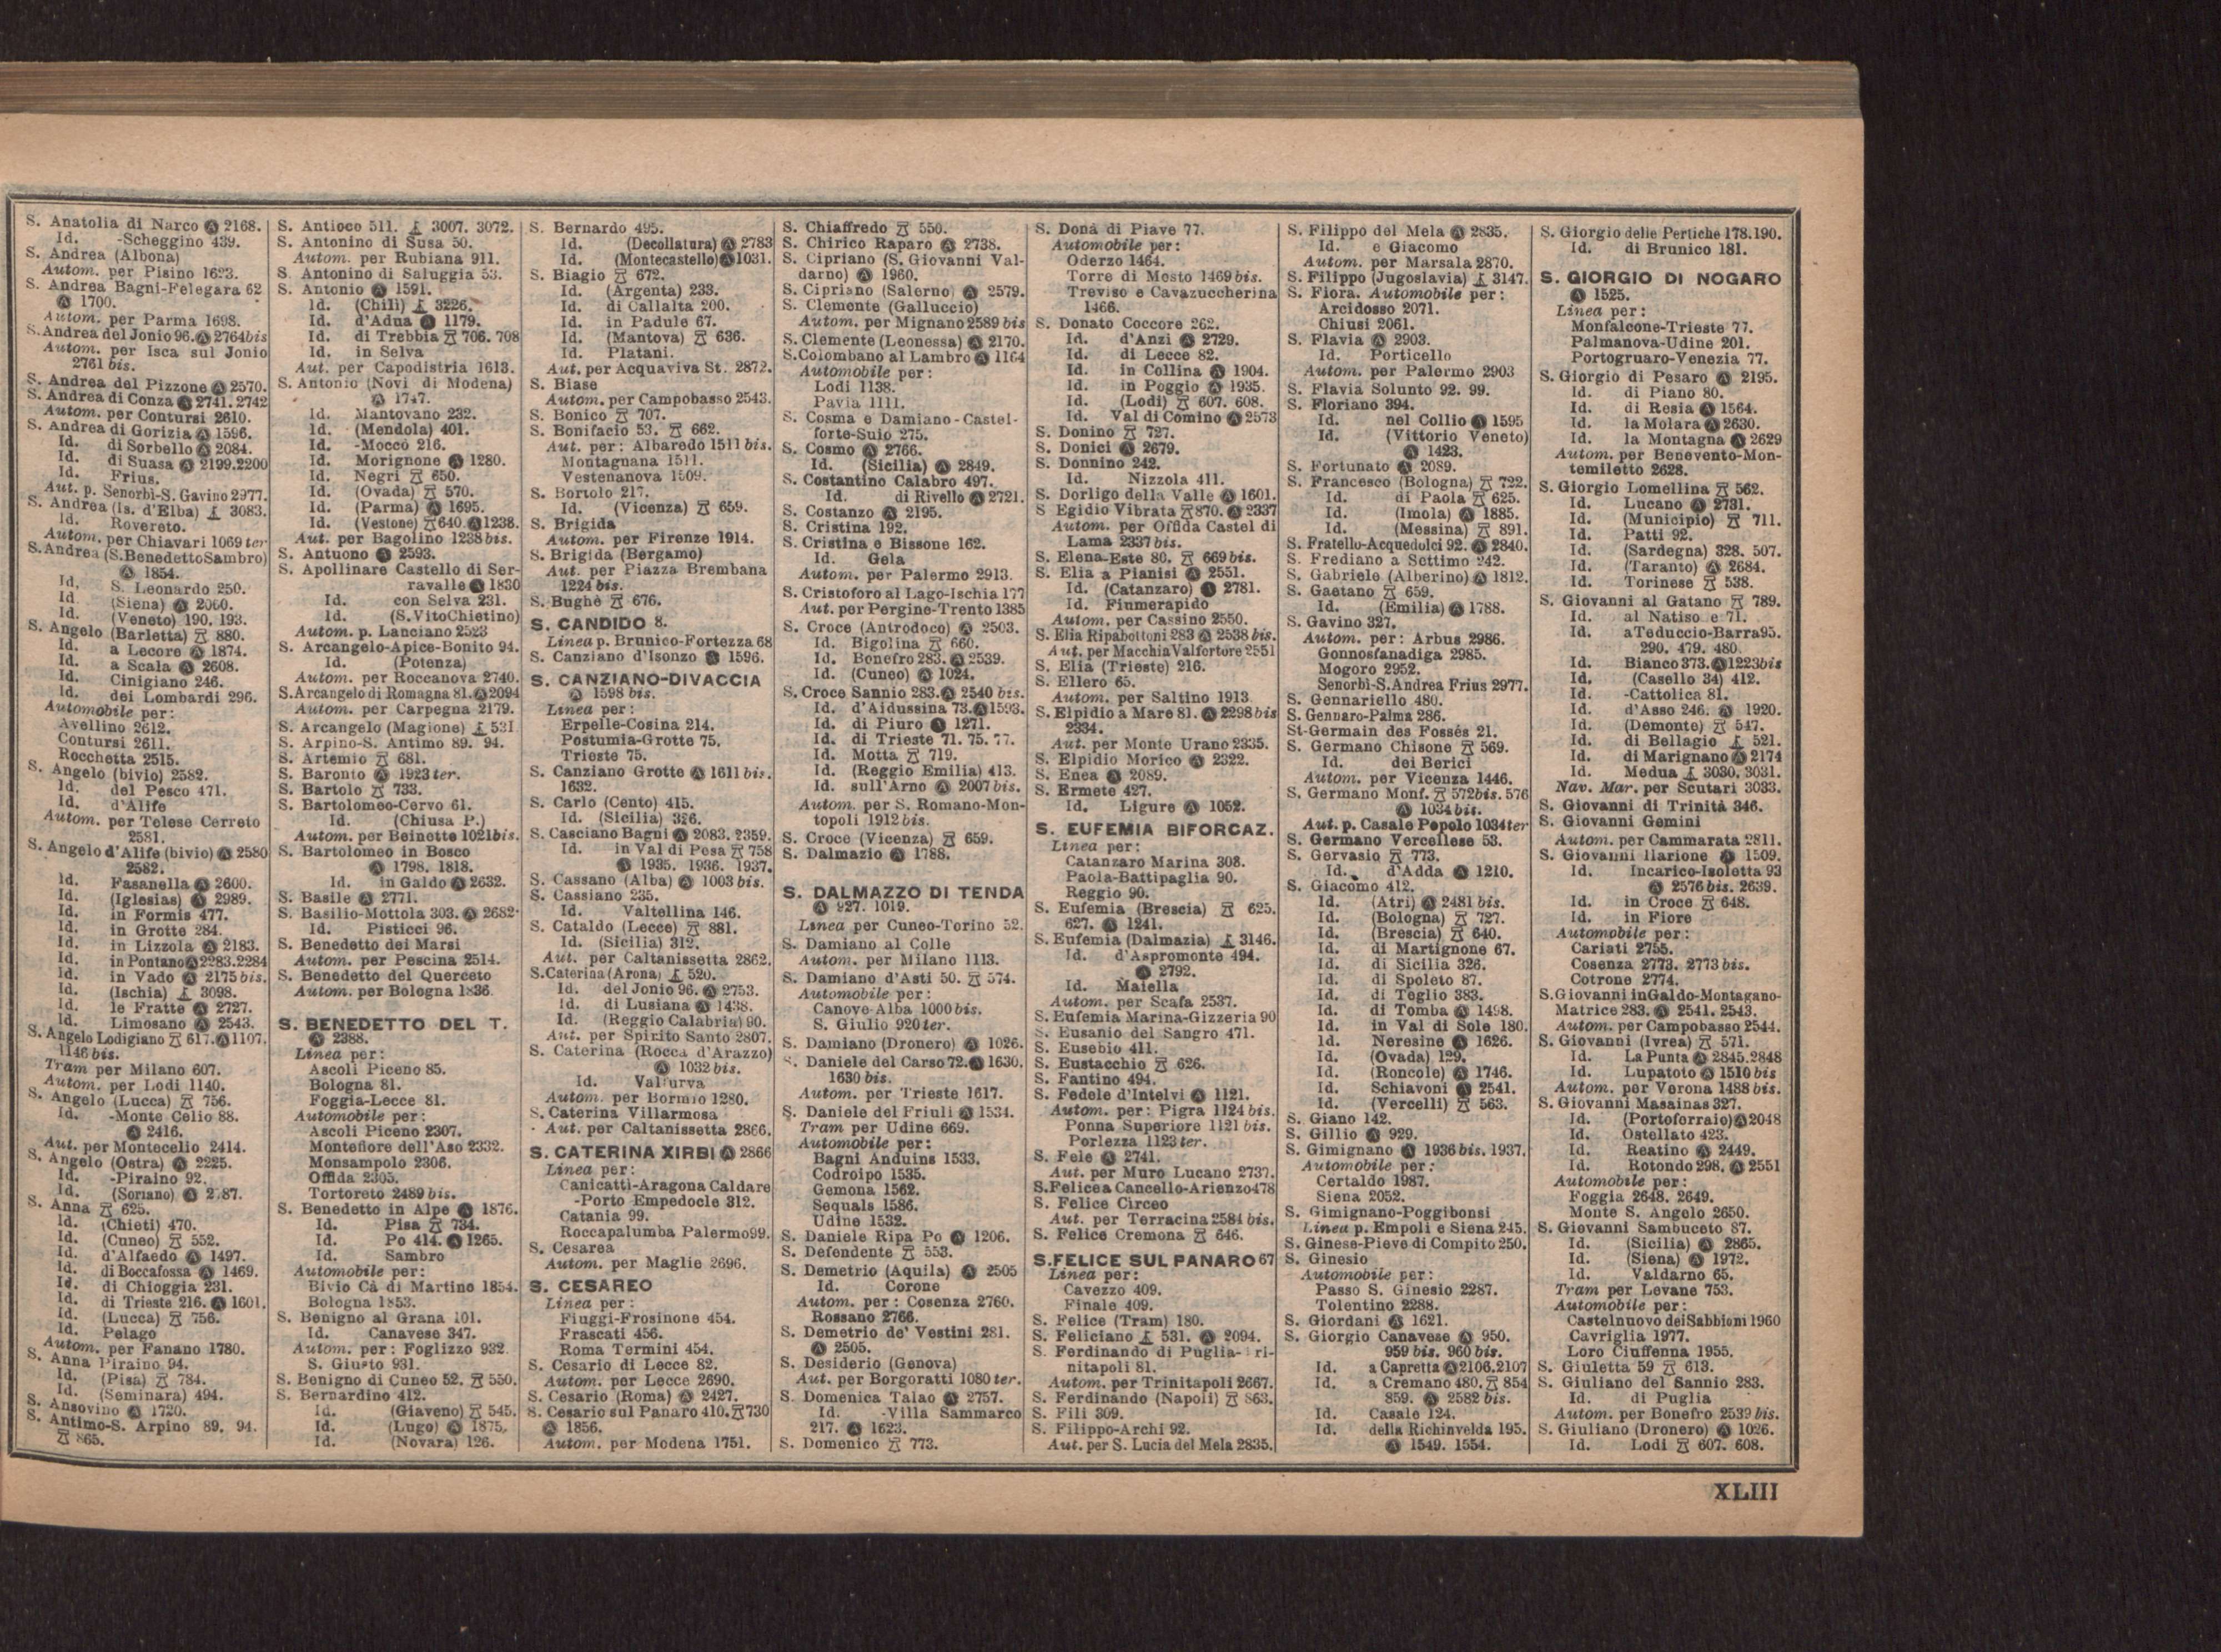 S. Anatolia di Narco Ⓐ 2168.
Id. -Scheggino 439.
S. Andrea (Albona)
Autom. per Pisino 1623.
S. Andrea Bagni-Felegara 62
Ⓐ 1700.
Autom. per Parma 1698.
S. Andrea del Jonio 96. Ⓐ 2764 bis
Autom. per Isca sul Jonio
2761 bis.
S. Andrea del Pizzone Ⓐ 2570.
S. Andrea di Conza Ⓐ 2741. 2742
Autom. per Contursi 2610.
S. Andrea di Gorizia Ⓐ 1596.
Id. di Sorbello Ⓐ 2084.
Id. di Suasa Ⓐ 2199.2200
Id. Frius.
Aut. p. Senorbì-S. Gavino 2977.
S. Andrea (Is. d'Elba) 3083.
Id. Rovereto.
Autom. per Chiavari 1069 ter
S. Andrea (S. Benedetto Sambro)
Ⓐ 1854.
Id. S. Leonardo 250.
Id. (Siena) Ⓐ 2060.
Id. (Veneto) 190. 193.
S. Angelo (Barletta) 880.
Id. a Lecore Ⓐ 1874.
Id. a Scala Ⓐ 2608.
Id. Cinigiano 246.
Id. dei Lombardi 296.
Automobile per:
Avellino 2612.
Contursi 2611.
Rocchetta 2515.
S. Angelo (bivio) 2582.
Id. del Pesco 471.
Id. d'Alife
Autom. per Telese Cerreto
2581.
S. Angelo d'Alife (bivio) Ⓐ 2580
2582.
Id. Fasanella Ⓐ 2600.
Id. (Iglesias) Ⓐ 2989.
Id. in Formis 477.
Id. in Grotte 284.
Id. in Lizzola Ⓐ 2183.
Id. in Pontano Ⓐ 2283.2284
Id. in Vado Ⓐ 2175 bis.
Id. (Ischia) 3098.
Id. le Fratte Ⓐ 2727.
Id. Limosano Ⓐ 2543.
S. Angelo Lodigiano 617. Ⓐ 1107.
1146 bis.
Tram per Milano 607.
Autom. per Lodi 1140.
S. Angelo (Lucca) 756.
Id. -Monte Celio 88.
Ⓐ 2416.
Aut. per Montecelio 2414.
S. Angelo (Ostra) Ⓐ 2225.
Id. -Piraino 92.
Id. (Soriano) Ⓐ
S. Anna 625.
Id. (Chieti) 470.
Id. (Cuneo) 552.
Id. d'Alfaedo Ⓐ 1497.
Id. di Boccafossa Ⓐ 1469.
Id. di Chioggia 231.
Id. di Trieste 216. Ⓐ 1601.
Id. (Lucca) 756.
Id. Pelago
Autom. per Fanano 1780.
S. Anna Piraino 94.
Id. (Pisa) 784.
Id. (Seminara) 494.
S. Ansovino Ⓐ 1720.
S. Antimo-S. Arpino 89. 94.
865.
S. Antioco 511. 3007. 3072.
S. Antonino di Susa 50.
Autom. per Rubiana 911.
S. Antonino di Saluggia 53.
S. Antonio Ⓐ 1591.
Id. (Chili) 3226.
Id. d'Adua Ⓐ 1179.
Id. di Trebbia 706. 708
Id. in Selva
Aut. per Capodistria 1613.
S. Antonio (Novi di Modena)
Ⓐ 1747.
Id. Mantovano 232.
Id. (Mendola) 401.
Id. -Moccò 216.
Id. Morignone Ⓐ 1280.
Id. Negri 650.
Id. (Ovada) 570.
Id. (Parma) Ⓐ 1695.
Id. (Vestone) 640. Ⓐ 1238.
Aut. per Bagolino 1238 bis.
S. Antuono Ⓐ 2593.
S. Apollinare Castello di Ser-
ravalle Ⓐ 1830
Id. con Selva 231.
Id. (S. Vito Chietino)
Autom. p. Lanciano 2523
S. Arcangelo-Apice-Bonito 94.
Id. (Potenza)
Autom. per Roccanova 2740.
S. Arcangelo di Romagna 81. Ⓐ 2094
Autom. per Carpegna 2179.
S. Arcangelo (Magione) 531
S. Arpino-S. Antimo 89. 94.
S. Artemio 681.
S. Baronto Ⓐ 1923 ter.
S. Bartolo 733.
S. Bartolomeo-Cervo 61.
Id. (Chiusa P.)
Autom. per Beinette 1021 bis.
S. Bartolomeo in Bosco
Ⓐ 1798. 1818.
Id. in Galdo Ⓐ 2632.
S. Basile Ⓐ 2771.
S. Basilio-Mottola 303. Ⓐ 2682.
Id. Pisticci 96.
S. Benedetto dei Marsi
Autom. per Pescina 2514.
S. Benedetto del Querceto
Autom. per Bologna 1836
S. BENEDETTO DEL T.
Ⓐ 2388.
Linea per:
Ascoli Piceno 85.
Bologna 81.
Foggia-Lecce 81.
Automobile per:
Ascoli Piceno 2307.
Montefiore dell'Aso 2332.
Monsampolo 2306.
Offida 2305.
Tortoreto 2489 bis.
S. Benedetto in Alpe Ⓐ 1876.
Id. Pisa 734.
Id. Po 414. Ⓐ 1265.
Id. Sambro
Automobile per:
Bivio Cà di Martino 1854.
Bologna 1853.
S. Benigno al Grana 101.
Id. Canavese 347.
Autom. per: Foglizzo 932
S. Giusto 931.
S. Benigno di Cuneo 52. 550.
S. Bernardino 412.
Id. (Giaveno) 545.
Id. (Lugo) Ⓐ 1875.
Id. (Novara) 126.
S. Bernardo 495.
Id. (Decollatura) Ⓐ 2783
Id. (Montecastello) Ⓐ 1031.
S. Biagio 672.
Id. (Argenta) 233.
Id. di Callalta 200.
Id. in Padule 67.
Id. (Mantova) 636.
Id. Platani.
Aut. per Acquaviva St. 2872.
S. Biase
Autom. per Campobasso 2543.
S. Bonico 707.
S. Bonifacio 53. 662.
Aut. per: Albaredo 1511 bis.
Montagnana 1511.
Vestenanova 1509.
S. Bortolo 217.
Id. (Vicenza) 659.
S. Brigida
Autom. per Firenze 1914.
S. Brigida (Bergamo)
Aut. per Piazza Brembana
1224 bis.
S. Bughè 676.
S. CANDIDO 8.
Linea p. Brunico-Fortezza 68
S. Canziano d'Isonzo Ⓐ 1596.
S. CANZIANO-DIVACCIA
Ⓐ 1598 bis.
Linea per:
Erpelle-Cosina 214.
Postumia-Grotte 75.
Trieste 75.
S. Canziano Grotte Ⓐ 1611 bis.
1632.
S. Carlo (Cento) 415.
Id. (Sicilia) 326.
S. Casciano Bagni Ⓐ 2083. 2359.
Id. in Val di Pesa 758
Ⓐ 1935. 1936. 1937.
S. Cassano (Alba) Ⓐ 1003 bis.
S. Cassiano 235.
Id. Valtellina 146.
S. Cataldo (Lecce) 881.
Id. (Sicilia) 312.
Aut. per Caltanissetta 2862.
S. Caterina (Arona) 520.
Id. del Jonio 96. Ⓐ 2753.
Id. di Lusiana Ⓐ 1438.
Id. (Reggio Calabria) 90.
Aut. per Spirito Santo 2807.
S. Caterina (Rocca d'Arazzo)
Ⓐ 1032 bis.
Id. Valfurva
Autom. per Bormio 1280.
S. Caterina Villarmosa
Aut. per Caltanissetta 2866.
S. CATERINA XIRBI Ⓐ 2866
Linea per:
Canicattì-Aragona Caldare
-Porto Empedocle 312.
Catania 99.
Roccapalumba Palermo 99.
S. Cesarea
Autom. per Maglie 2696.
S. CESAREO
Linea per:
Fiuggi-Frosinone 454.
Frascati 456.
Roma Termini 454.
S. Cesario di Lecce 82.
Autom. per Lecce 2690.
S. Cesario (Roma) Ⓐ 2427.
S. Cesario sul Panaro 410. 730
Ⓐ 1856.
Autom. per Modena 1751.
S. Chiaffredo 550.
S. Chirico Raparo Ⓐ 2738.
S. Cipriano (S. Giovanni Val-
darno) Ⓐ 1960.
S. Cipriano (Salerno) Ⓐ 2579.
S. Clemente (Galluccio)
Autom. per Mignano 2589 bis
S. Clemente (Leonessa) Ⓐ 2170.
S. Colombano al Lambro Ⓐ 1164
Automobile per:
Lodi 1138.
Pavia 1111.
S. Cosma e Damiano-Castel-
forte-Suio 275.
S. Cosmo Ⓐ 2766.
Id. (Sicilia) Ⓐ 2849.
S. Costantino Calabro 497.
Id. di Rivello Ⓐ 2721.
S. Costanzo Ⓐ 2195.
S. Cristina 192.
S. Cristina e Bissone 162.
Id. Gela
Autom. per Palermo 2913.
S. Cristoforo al Lago-Ischia 177
Aut. per Pergine-Trento 1385
S. Croce (Antrodoco) Ⓐ 2503.
Id. Bigolina 660.
Id. Bonefro 283. Ⓐ 2539.
Id. (Cuneo) Ⓐ 1024.
S. Croce Sannio 283. Ⓐ 2540 bis.
Id. d'Aidussina 73. Ⓐ 1593.
Id. di Piuro Ⓐ 1271.
Id. di Trieste 71. 75. 77.
Id. Motta 719.
Id. (Reggio Emilia) 413.
Id. sull'Arno Ⓐ 2007 bis.
Autom. per S. Romano-Mon-
topoli 1912 bis.
S. Croce (Vicenza) 659.
S. Dalmazio Ⓐ 1788.
S. DALMAZZO DI TENDA
Ⓐ 927. 1019.
Linea per Cuneo-Torino 52.
S. Damiano al Colle
Autom. per Milano 1113.
S. Damiano d'Asti 50. 574.
Automobile per:
Canove-Alba 1000 bis.
S. Giulio 920 ter.
S. Damiano (Dronero) Ⓐ 1026.
S. Daniele del Carso 72. Ⓐ 1630.
1630 bis.
Autom. per Trieste 1617.
S. Daniele del Friuli Ⓐ 1534.
Tram per Udine 669.
Automobile per:
Bagni Anduins 1533.
Codroipo 1535.
Gemona 1562.
Sequals 1586.
Udine 1532.
S. Daniele Ripa Po Ⓐ 1206.
S. Defendente 553.
S. Demetrio (Aquila) Ⓐ 2505
Id. Corone
Autom. per: Cosenza 2760.
Rossano 2766.
S. Demetrio de' Vestini 281.
Ⓐ 2505.
S. Desiderio (Genova)
Aut. per Borgoratti 1080 ter.
S. Domenica Talao Ⓐ 2757.
Id. -Villa Sammarco
217. Ⓐ 1623.
S. Domenico 773.
S. Donà di Piave 77.
Automobile per:
Oderzo 1464.
Torre di Mosto 1469 bis.
Treviso e Cavazuccherina
1466.
S. Donato Coccore 262.
Id. d'Anzi Ⓐ 2729.
Id. di Lecce 82.
Id. in Collina Ⓐ 1904.
Id. in Poggio Ⓐ 1935.
Id. (Lodi) 607. 608.
Id. Val di Comino Ⓐ 2573
S. Donino 727.
S. Donici Ⓐ 2679.
S. Donnino 242.
Id. Nizzola 411.
S. Dorligo della Valle Ⓐ 1601.
S Egidio Vibrata 870. Ⓐ 2337
Autom. per Offida Castel di
Lama 2337 bis.
S. Elena-Este 80. 669 bis.
S. Elia a Pianisi Ⓐ 2551.
Id. (Catanzaro) Ⓐ 2781.
Id. Fiumerapido
Autom. per Cassino 2550.
S. Elia Ripabottoni 283 Ⓐ 2538 bis.
Aut. per Macchia Valfortore 2551
S. Elia (Trieste) 216.
S. Ellero 65.
Autom. per Saltino 1913.
S. Elpidio a Mare 81. Ⓐ 2298 bis
2334.
Aut. per Monte Urano 2335.
S. Elpidio Morico Ⓐ 2322.
S. Enea Ⓐ 2089.
S. Ermete 427.
Id. Ligure Ⓐ 1052.
S. EUFEMIA BIFORCAZ.
Linea per:
Catanzaro Marina 308.
Paola-Battipaglia 90.
Reggio 90.
S. Eufemia (Brescia) 625.
627. Ⓐ 1241.
S. Eufemia (Dalmazia) 3146.
Id. d'Aspromonte 494.
Ⓐ 2792.
Id. Maiella
Autom. per Scafa 2537.
S. Eufemia Marina-Gizzeria 90
S. Eusanio del Sangro 471.
S. Eusebio 411.
S. Eustacchio 626.
S. Fantino 494.
S. Fedele d'Intelvi Ⓐ 1121.
Autom. per: Pigra 1124 bis.
Ponna Superiore 1121 bis.
Porlezza 1123 ter.
S. Fele Ⓐ 2741.
Aut. per Muro Lucano 2737.
S. Felice a Cancello-Arienzo 478
S. Felice Circeo
Aut. per Terracina 2584 bis.
S. Felice Cremona 646.
S. FELICE SUL PANARO 67
Linea per:
Cavezzo 409.
Finale 409.
S. Felice (Tram) 180.
S. Feliciano 531. Ⓐ 2094.
S. Ferdinando di Puglia-
nitapoli 81.
Autom. per Trinitapoli 2667.
S. Ferdinando (Napoli) 863.
S. Fili 309.
S. Filippo-Archi 92.
Aut. per S. Lucia del Mela 2835.
S. Filippo del Mela Ⓐ 2835.
Id. e Giacomo
Autom. per Marsala 2870.
S. Filippo (Jugoslavia) 3147.
S. Fiora. Automobile per:
Arcidosso 2071.
Chiusi 2061.
S. Flavia Ⓐ 2903.
Id. Porticello
Autom. per Palermo 2903
S. Flavia Solunto 92. 99.
S. Floriano 394.
Id. nel Collio Ⓐ 1595
Id. (Vittorio Veneto)
Ⓐ 1423.
S. Fortunato Ⓐ 2089.
S. Francesco (Bologna) 722.
Id. di Paola 625.
Id. (Imola) Ⓐ 1885.
Id. (Messina) 891.
S. Fratello-Acquedolci 92. Ⓐ 2840.
S. Frediano a Settimo 242.
S. Gabriele (Alberino) Ⓐ 1812.
S. Gaetano 659.
Id. (Emilia) Ⓐ 1788.
S. Gavino 327.
Autom. per: Arbus 2986.
Gonnosfanadiga 2985.
Mogoro 2952.
Senorbì-S. Andrea Frius 2977.
S. Gennariello 480.
S. Gennaro-Palma 286.
St-Germain des Fossés 21.
S. Germano Chisone 569.
Id. dei Berici
Autom. per Vicenza 1446.
S. Germano Monf. 572 bis. 576
Ⓐ 1034 bis.
Aut. p. Casale Popolo 1034 ter
S. Germano Vercellese 53.
S. Gervasio 773.
Id. d'Adda Ⓐ 1210.
S. Giacomo 412.
Id. (Atri) Ⓐ 2481 bis.
Id. (Bologna) 727.
Id. (Brescia) 640.
Id. di Martignone 67.
Id. di Sicilia 326.
Id. di Spoleto 87.
Id. di Teglio 383.
Id. di Tomba Ⓐ 1498.
Id. in Val di Sole 180.
Id. Neresine Ⓐ 1626.
Id. (Ovada) 129.
Id. (Roncole) Ⓐ 1746.
Id. Schiavoni Ⓐ 2541.
Id. (Vercelli) 563.
S. Giano 142.
S. Gillio Ⓐ 929.
S. Gimignano Ⓐ 1936 bis. 1937.
Automobile per:
Certaldo 1987.
Siena 2052.
S. Gimignano-Poggibonsi
Linea p. Empoli e Siena 245.
S. Ginese-Pieve di Compito 250.
S. Ginesio
Automobile per:
Passo S. Ginesio 2287.
Tolentino 2288.
S. Giordani Ⓐ 1621.
S. Giorgio Canavese Ⓐ 950.
959 bis. 960 bis.
Id. a Capretta Ⓐ 2106.2107
Id. a Cremano 480. 854
859. Ⓐ 2582 bis.
Id. Casale 124.
Id. della Richinvelda 195.
Ⓐ 1549. 1554.
S. Giorgio delle Pertiche 178.190.
Id. di Brunico 181.
S. GIORGIO DI NOGARO
Ⓐ 1525.
Linea per:
Monfalcone-Trieste 77.
Palmanova-Udine 201.
Portogruaro-Venezia 77.
S. Giorgio di Pesaro Ⓐ 2195.
Id. di Piano 80.
Id. di Resia Ⓐ 1564.
Id. la Molara Ⓐ 2630.
Id. la Montagna Ⓐ 2629
Autom. per Benevento-Mon-
temiletto 2628.
S. Giorgio Lomellina 562.
Id. Lucano Ⓐ 2731.
Id. (Municipio) 711.
Id. Patti 92.
Id. (Sardegna) 328. 507.
Id. (Taranto) Ⓐ 2684.
Id. Torinese 538.
S. Giovanni al Gatano 789.
Id. al Natiso e 71.
Id. a Teduccio-Barra 95.
290. 479. 480
Id. Bianco 373. Ⓐ 1223 bis
Id. (Casello 34) 412.
Id. -Cattolica 81.
Id. d'Asso 246. Ⓐ 1920.
Id. (Demonte) 547.
Id. di Bellagio 521.
Id. di Marignano Ⓐ 2174
Id. Medua 3030. 3031.
Nav. Mar. per Scutari 3033.
S. Giovanni di Trinità 346.
S. Giovanni Gemini
Autom. per Cammarata 2811.
S. Giovanni Ilarione Ⓐ 1509.
Id. Incarico-Isoletta 93
Ⓐ 2576 bis. 2639.
Id. in Croce 648.
Id. in Fiore
Automobile per:
Cariati 2755.
Cosenza 2773. 2773 bis.
Cotrone 2774.
S. Giovanni in Galdo-Montagano-
Matrice 283. Ⓐ 2541. 2543.
Autom. per Campobasso 2544.
S. Giovanni (Ivrea) 571.
Id. La Punta Ⓐ 2845.2848
Id. Lupatoto Ⓐ 1510 bis
Autom. per Verona 1488 bis.
S. Giovanni Masainas 327.
Id. (Portoferraio) Ⓐ 2048
Id. Ostellato 423.
Id. Reatino Ⓐ 2449.
Id. Rotondo 298. Ⓐ 2551
Automobile per:
Foggia 2648. 2649.
Monte S. Angelo 2650.
S. Giovanni Sambuceto 87.
Id. (Sicilia) Ⓐ 2865.
Id. (Siena) Ⓐ 1972.
Id. Valdarno 65.
Tram per Levane 753.
Automobile per:
Castelnuovo dei Sabbioni 1960
Cavriglia 1977.
Loro Ciuffenna 1955.
S. Giuletta 59 613.
S. Giuliano del Sannio 283.
Id. di Puglia
Autom. per Bonefro 2539 bis.
S. Giuliano (Dronero) Ⓐ 1026.
Id. Lodi 607. 608.
XLIII